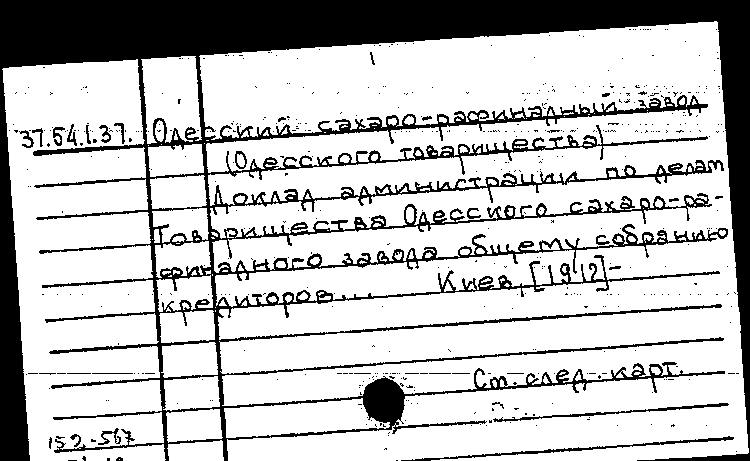 37.54.1.37. Одесский сахаро-рафинадный завод
(Одесского товарищества)
Доклад администрации по делам
Товарищества Одесского сахаро-ра-
финадного завода общему собранию
кредиторов... Киев, [1912]-
Ст. след. карт.
152.-567